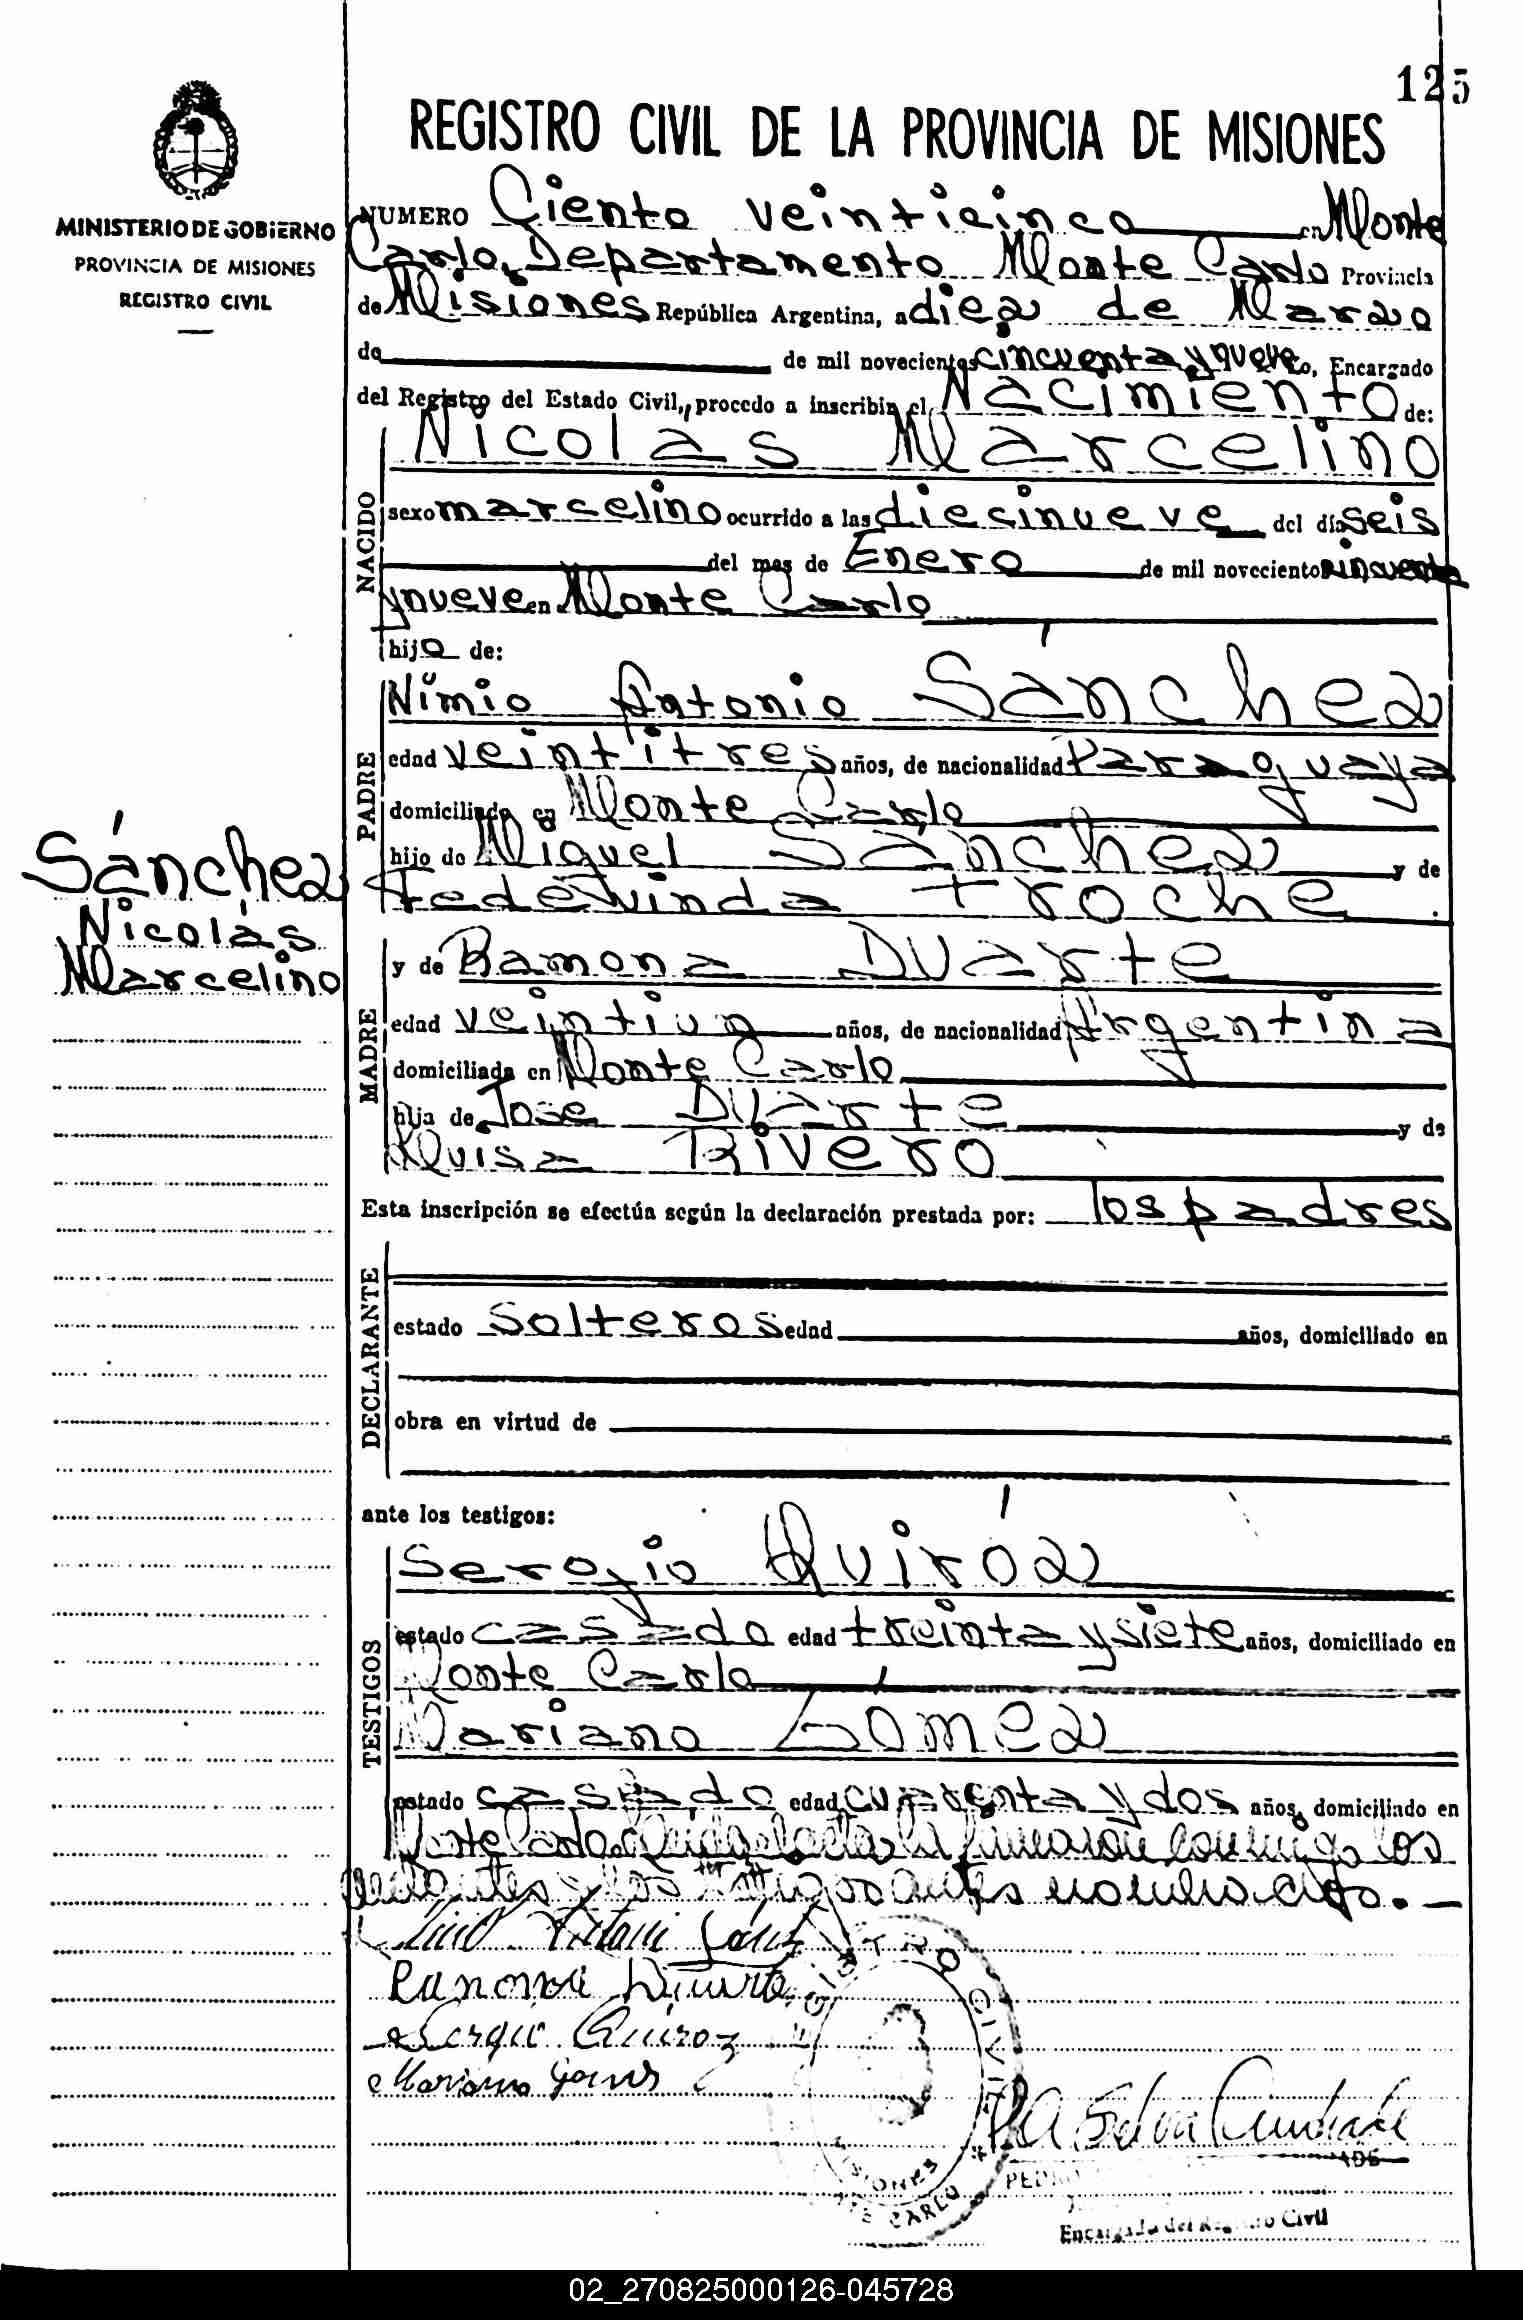 125
REGISTRO CIVIL DE LA PROVINCIA DE MISIONES
MINISTERIO DE GOBIERNO
PROVINCIA DE MISIONES
REGISTRO CIVIL
NUMERO Ciento veinticinco en Monte
Carlo, Departamento Monte Carlo Provincia
de Misiones República Argentina, a diez de Marzo
de de mil novecientos cincuenta y nueve Encargado
del Registro del Estado Civil, procedo a inscribir el Nacimiento de:
Nicolás Marcelino
NACIDO
sexo marcelino ocurrido a las diecinueve del día seis
del mes de Enero de mil novecientos cincuenta
y nueve en Monte Carlo
hijo de:
PADRE
Nimio Antonio Sánchez
edad veintitres años, de nacionalidad Paraguaya
domiciliado en Monte Carlo
hijo de Miguel Sánchez y de
Fedelvinda Troche
Sánchez
Nicolás
Marcelino
MADRE
y de Ramona Duarte
edad veintiun años, de nacionalidad Argentina
domiciliada en Monte Carlo
hija de José Duarte y de
Luisa Rivero
Esta inscripción se efectúa según la declaración prestada por: los padres
DECLARANTE
estado solteros edad años, domiciliado en
obra en virtud de
ante los testigos:
TESTIGOS
Sergio Quiróz
estado casado edad treinta y siete años, domiciliado en
Monte Carlo
Mariano Gómez
estado casado edad cuarenta y dos años, domiciliado en
Monte Carlo. Leída el acta la firmaron conmigo los
y los testigos antes
Sánchez
Ramona Duarte
Sergio Quiroz
Mariano Gomes
REGISTRO CIVIL
MISIONES
MONTE CARLO
P A Silva Andrade
PEDRO
Encargado del Registro Civil
02_270825000126-045728